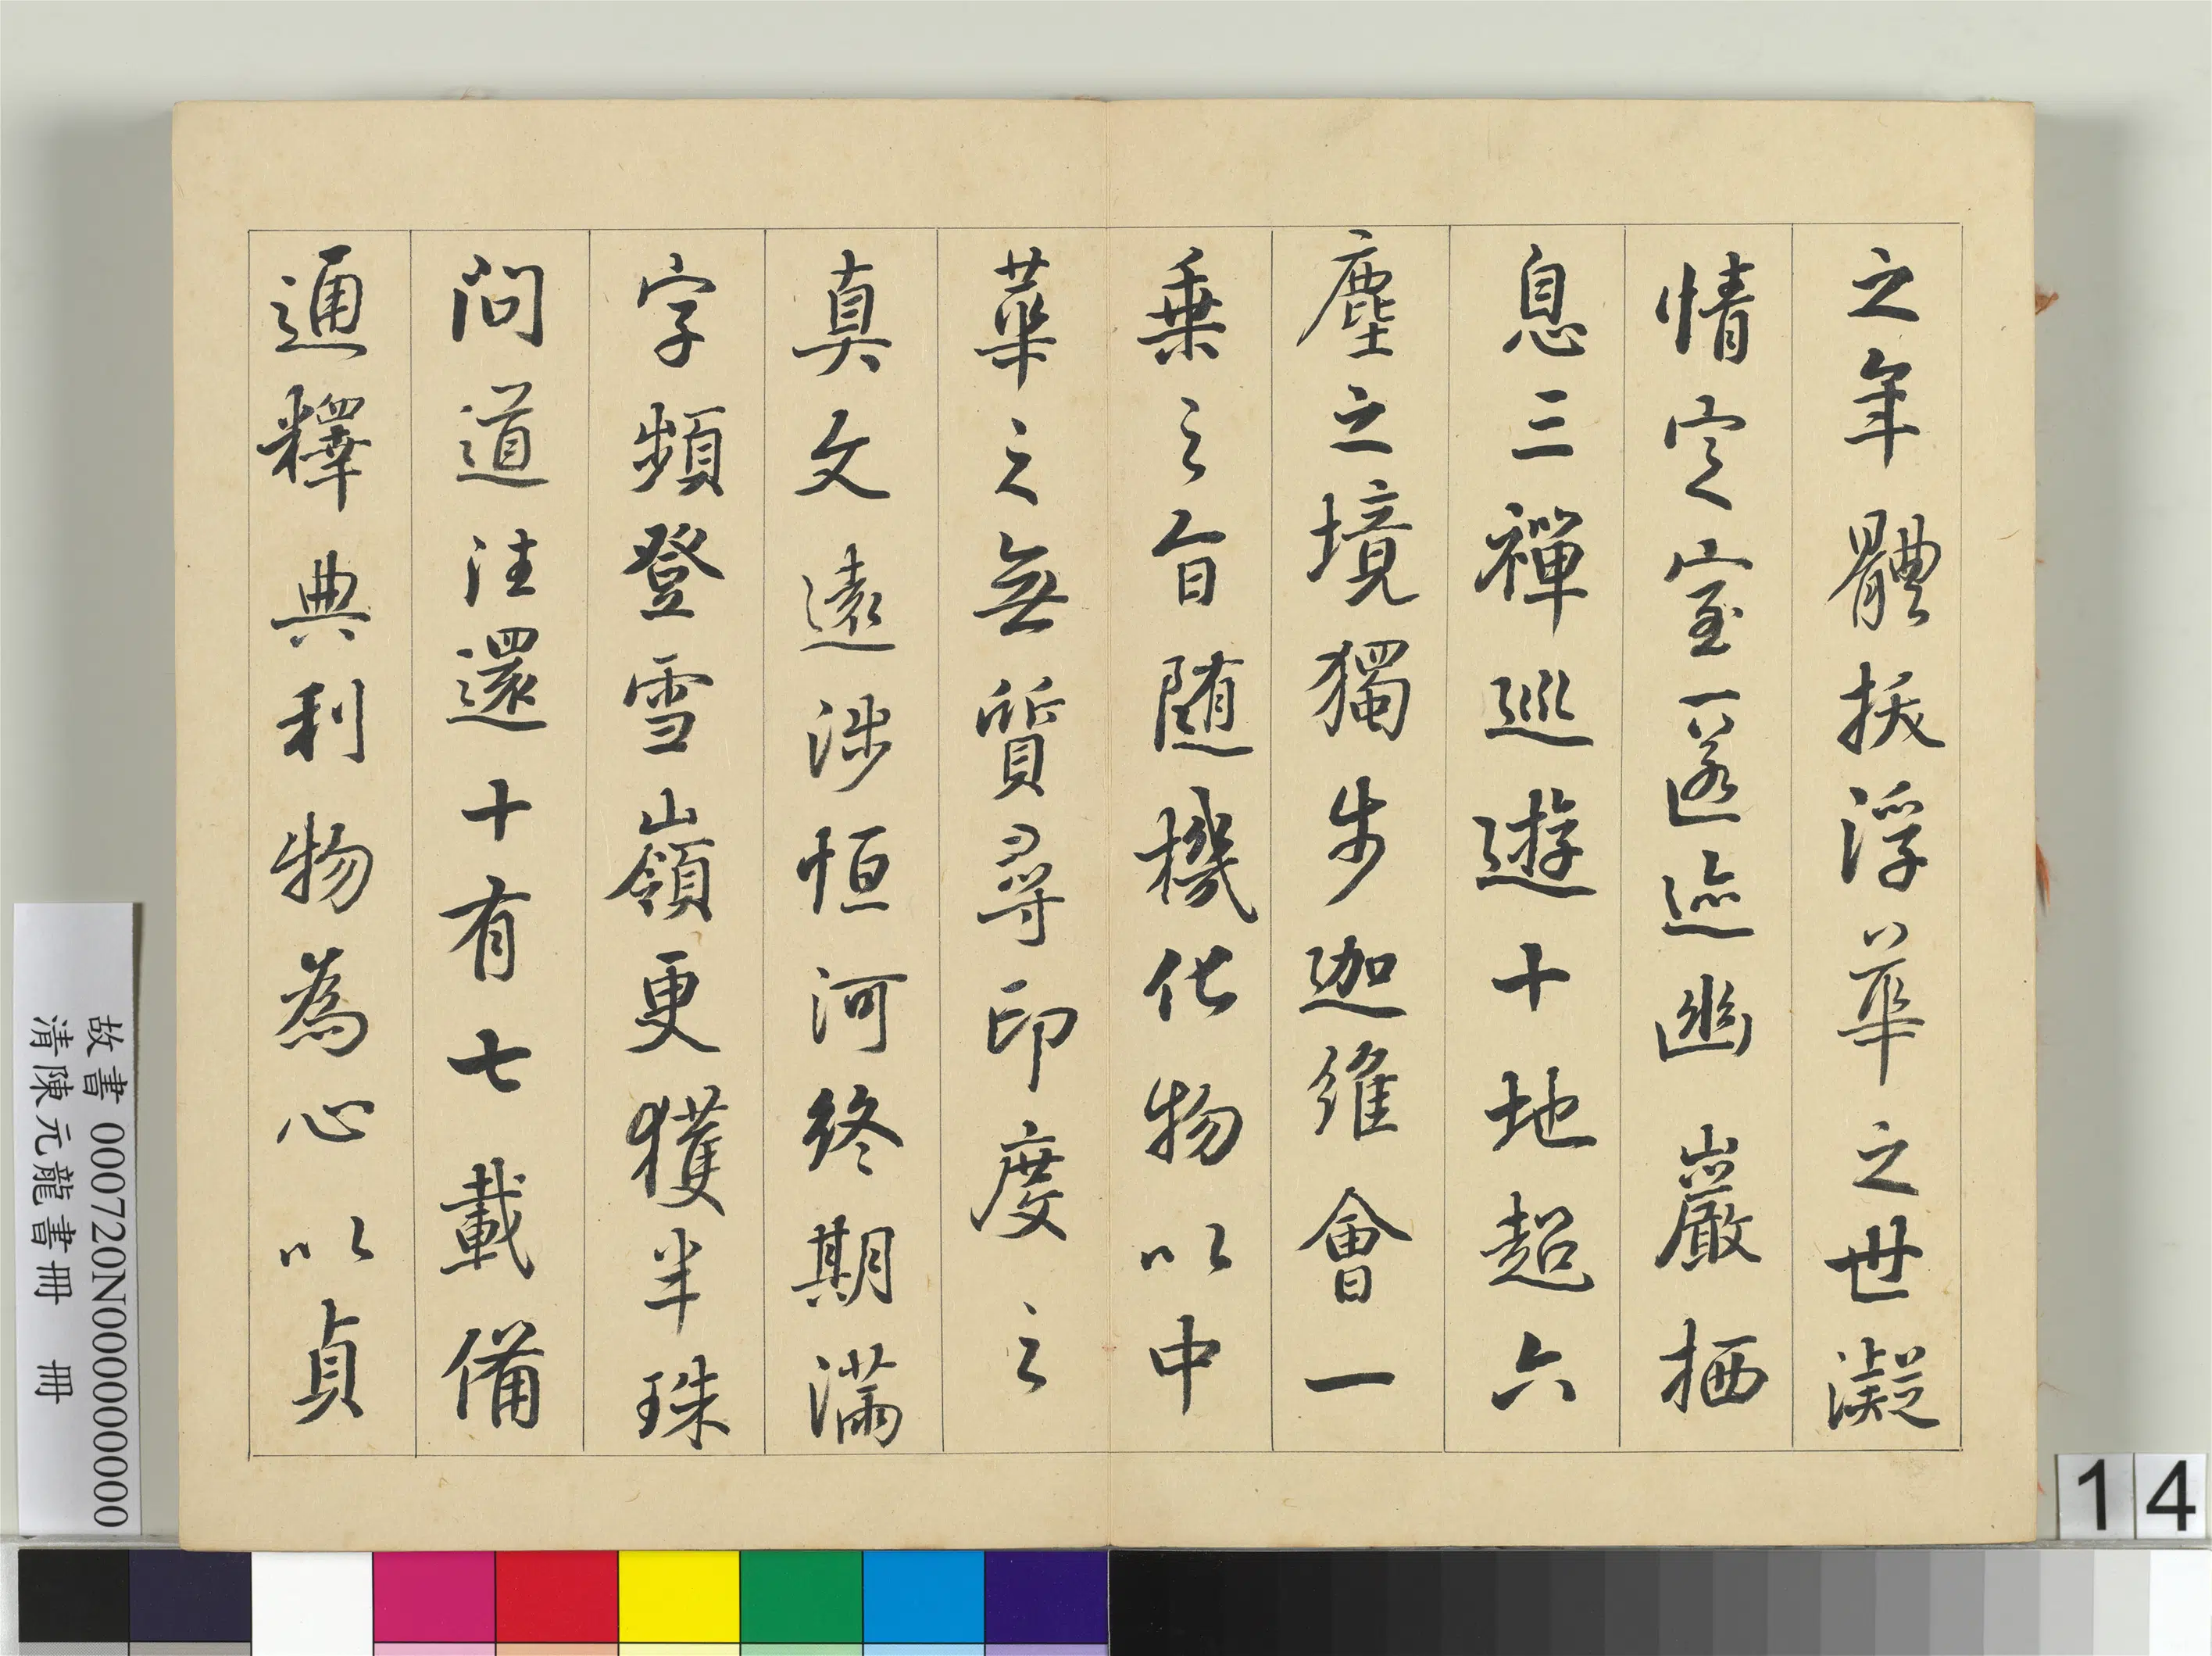 之年體拔浮華之世凝
情定室匿迹幽巖栖
息三禪巡遊十地超六
塵之境獨步迦維會一
乗之旨随機化物以中
華之無質尋印度之
真文遠涉恒河終期滿
字頻登雪嶺更獲半珠
問道往還十有七載備
通釋典利物為心以貞
故書 000720N000000000
清陳元龍書冊 冊
14